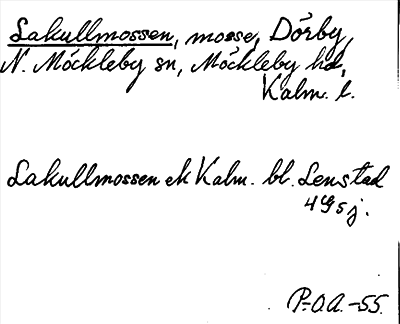 Lakullmossen, mosse, Dörby,
N. Möckleby sn, Möckleby hd,
Kalm. l.
Lakullmossen ek Kalm. bl. Lenstad
4G5j.
P.O.A.-55.